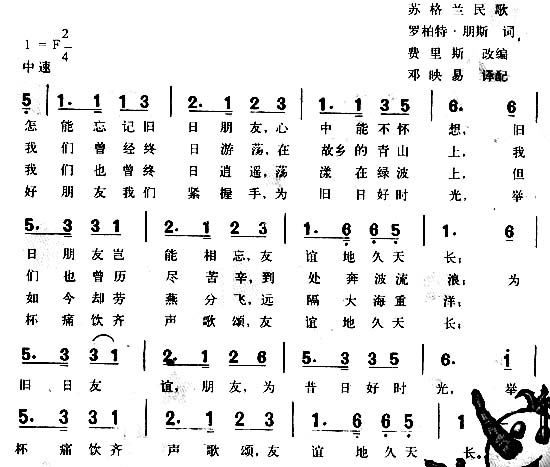 苏格兰民歌
1=F 2/4
罗柏特·朋斯 词
中速
费里斯 改编
邓映易 译配
5 | 1. 1 1 3 | 2. 1 2 3 | 1. 1 3 5 | 6. 6
怎能忘记旧日朋友,心中能不怀想,旧
我们曾经终日游荡,在故乡的青山上,我
我们也曾终日逍遥,荡漾在绿波上,但
好朋友我们紧握手,为旧日好时光,举
5. 3 3 1 | 2. 1 2 3 | 1. 6 6 5 | 1. 6
日朋友岂能相忘,友谊地久天长;
们也曾历尽苦辛,到处奔波流浪;为
如今却劳燕分飞,远隔大海重洋;
杯痛饮齐声歌颂,友谊地久天长;
5. 3 3 1 | 2. 1 2 6 | 5. 3 3 1 | 6. i
旧日友谊,朋友,为昔日好时光,举
5. 3 3 1 | 2. 1 2 3 | 1. 6 6 5 | 1
杯痛饮齐声歌颂,友谊地久天长。